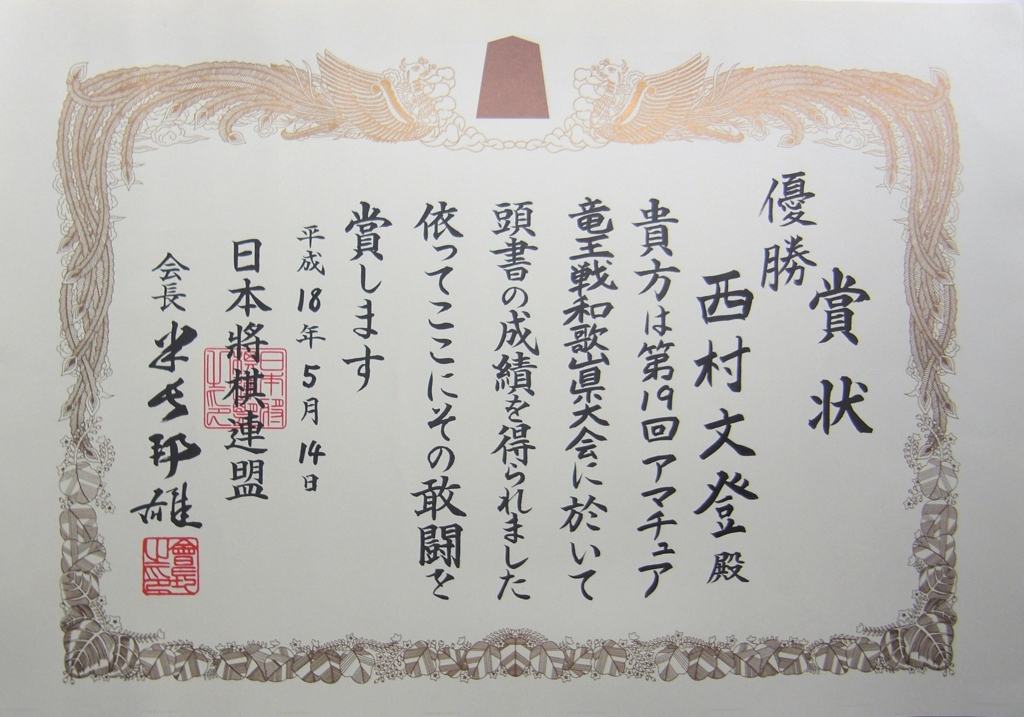 賞状
優勝
西村文登殿
貴方は第19回アマチュア
竜王戦和歌山県大会に於いて
頭書の成績を得られました
依ってここにその敢闘を
賞します
平成18年5月14日
日本將棋連盟
会長 米長邦雄
會長之印